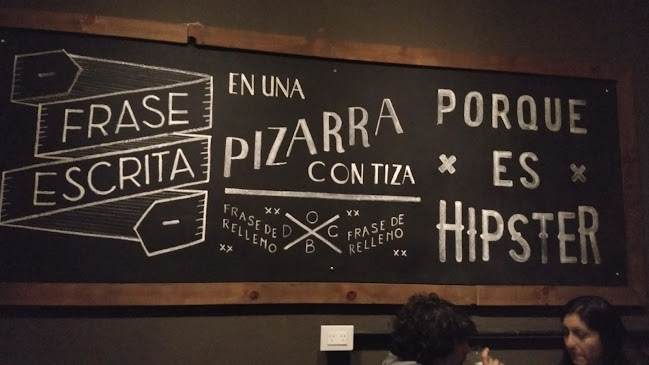 FRASE
ESCRITA
EN UNA
PIZARRA
CON TIZA
FRASE DE
RELLENO
O
D C
B
FRASE DE
RELLENO
PORQUE
ES
HIPSTER